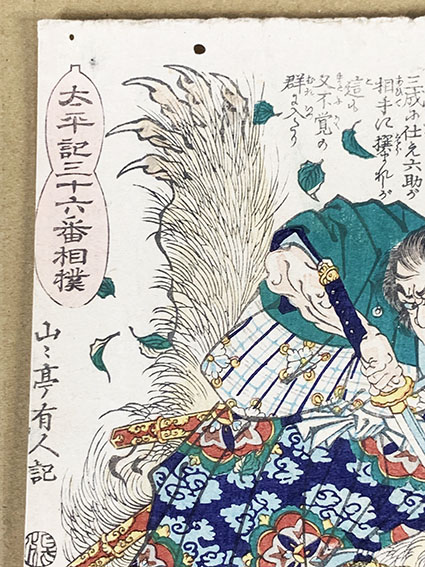 三成に仕え六助が
相手に撰まれが
這は
又不覚の
群に入り
太平記三十六番相撲
山々亭有人記